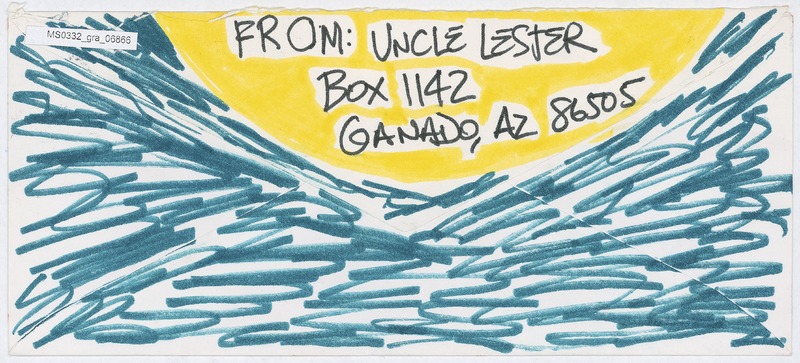 MS0332_gra_06866
FROM: UNCLE LESTER
BOX 1142
GANADO, AZ 86505